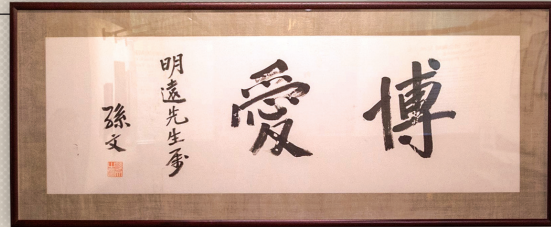 博愛
明遠先生屬
孫文